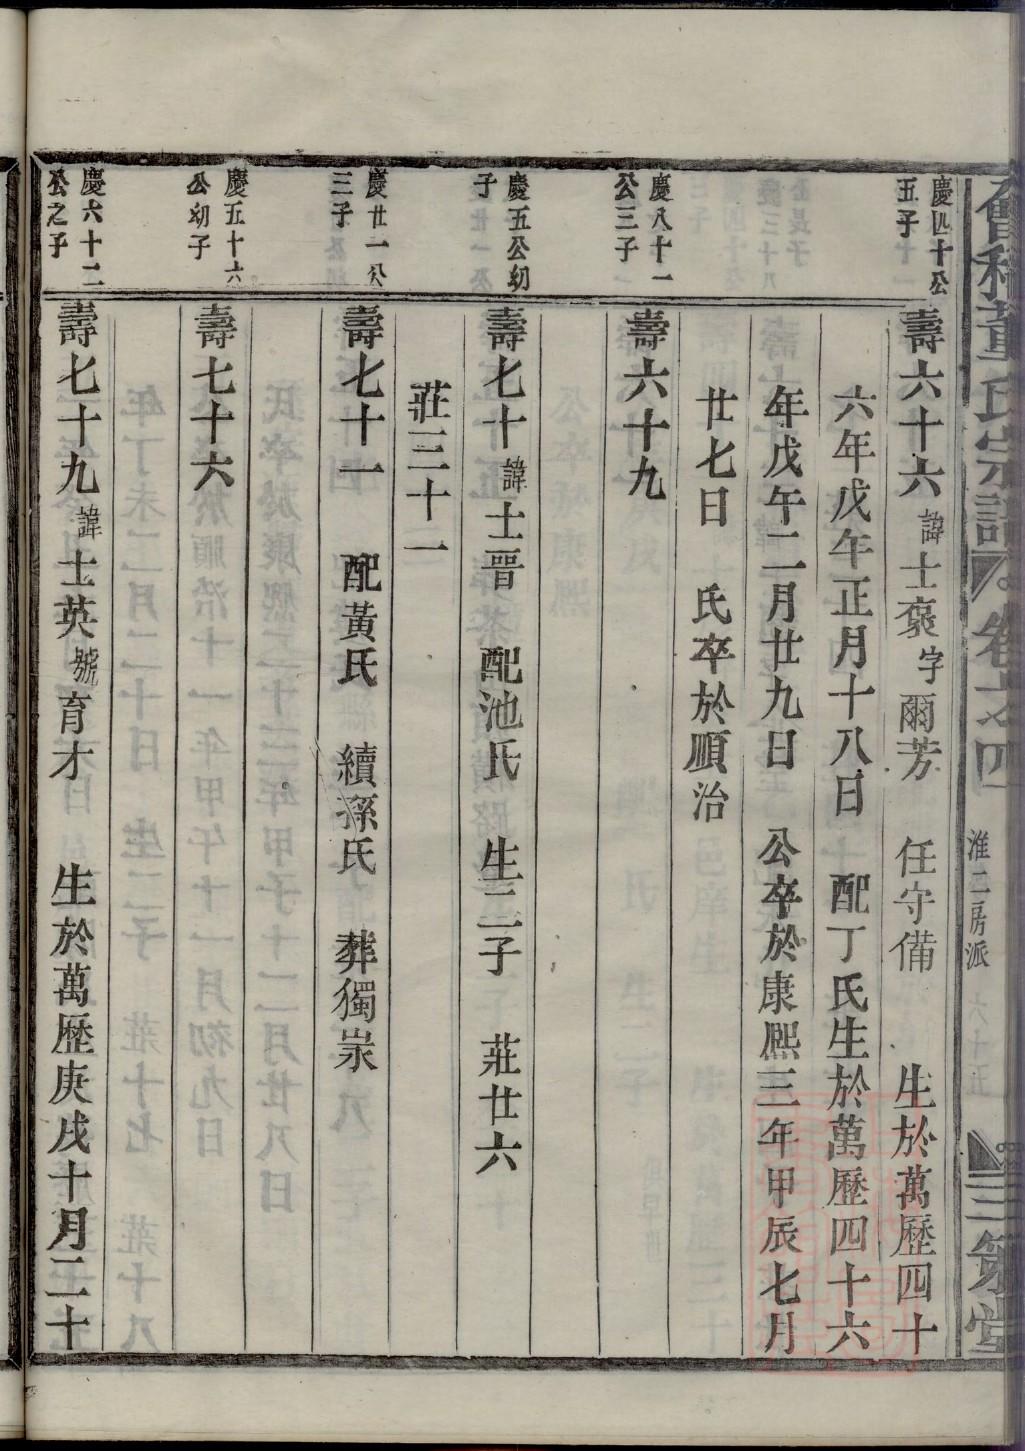 會稽董氏宗譜 卷六之四 淮二房派 六十五 三策堂
慶四十公
五子
壽六十六 諱士褒 字爾芳 任守備 生於萬歷四十
六年戊午正月十八日 配丁氏生於萬歷四十六
年戊午二月廿九日 公卒於康熙三年甲辰七月
廿七日 氏卒於順治
慶八十一
公三子
壽六十九
慶五公幼
子
壽七十 諱士晉 配池氏 生二子 莊廿六
莊三十一
慶廿一公
三子
壽七十一 配黃氏 續孫氏 葬獨
慶五十六
公幼子
壽七十六
慶六十二
公之子
壽七十九 諱士英 號育才 生於萬歷庚戌十月二十